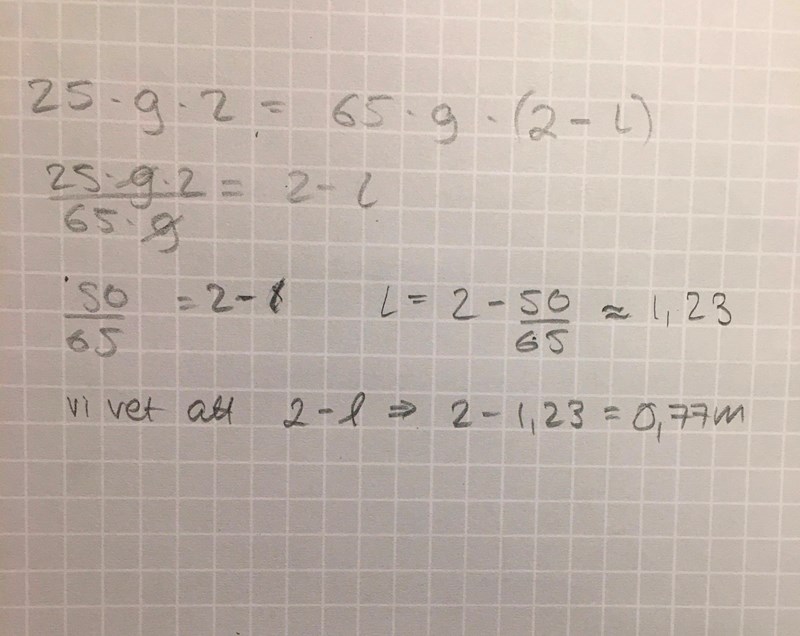 25 · g · 2 = 65 · g · (2 - l)
25 · g · 2 / 65 · g = 2 - l
50 / 65 = 2 - l   l = 2 - 50 / 65 ≈ 1,23
vi vet att 2 - l ⇒ 2 - 1,23 = 0,77m